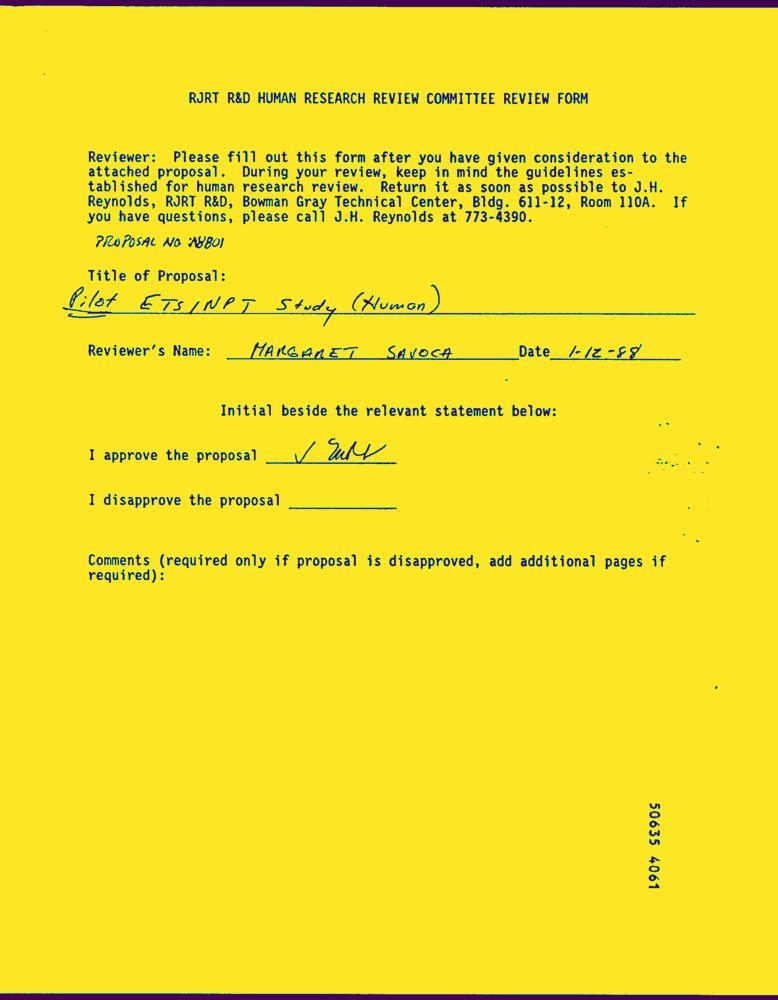 RJRT R&D HUMAN RESEARCH REVIEW COMMITTEE REVIEW FORM
Reviewer: Please fill out this form after you have given consideration to the
attached proposal. During your review, keep in mind the guidelines es-
tablished for human research review. Return it as soon as possible to J.H.
Reynolds, RJRT R&D, Bowman Gray Technical Center, Bldg. 611-12, Room 110A. If
you have questions, please call J.H. Reynolds at 773-4390.
PROPOSAL NO
Title of Proposal:
Pilot ETS/NPT Study (Human)
Reviewer's Name: MARGARET SAVOCA Date 1-12-88
Initial beside the relevant statement below:
I approve the proposal ✓
I disapprove the proposal
Comments (required only if proposal is disapproved, add additional pages if
required):
50635 4061